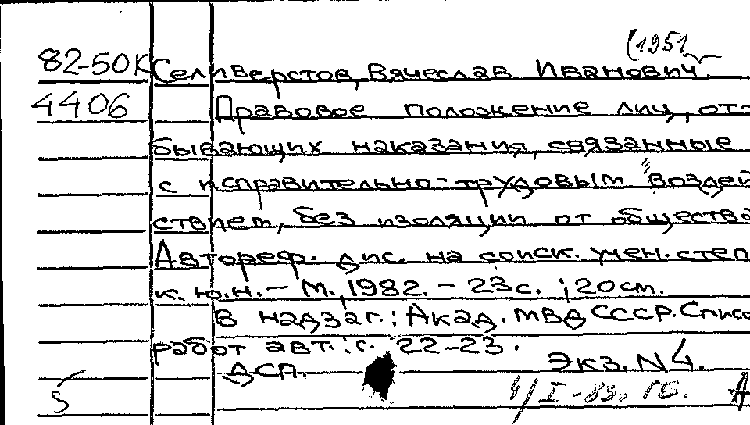 (1951
82-50К Селиверстов, Вячеслав Иванович.
4406 Правовое положение лиц, от-
бывающих наказания, связанные
с исправительно-трудовым воздей
ствием, без изоляции от общества
Автореф. дис. на соиск. учен. степ
к. ю. н. – М., 1982. – 23с. ; 20см.
В надзаг.: Акад. МВД СССР. Списо
работ авт.: с. 22-23.
ДСП. Экз. N4.
5 I-83. А